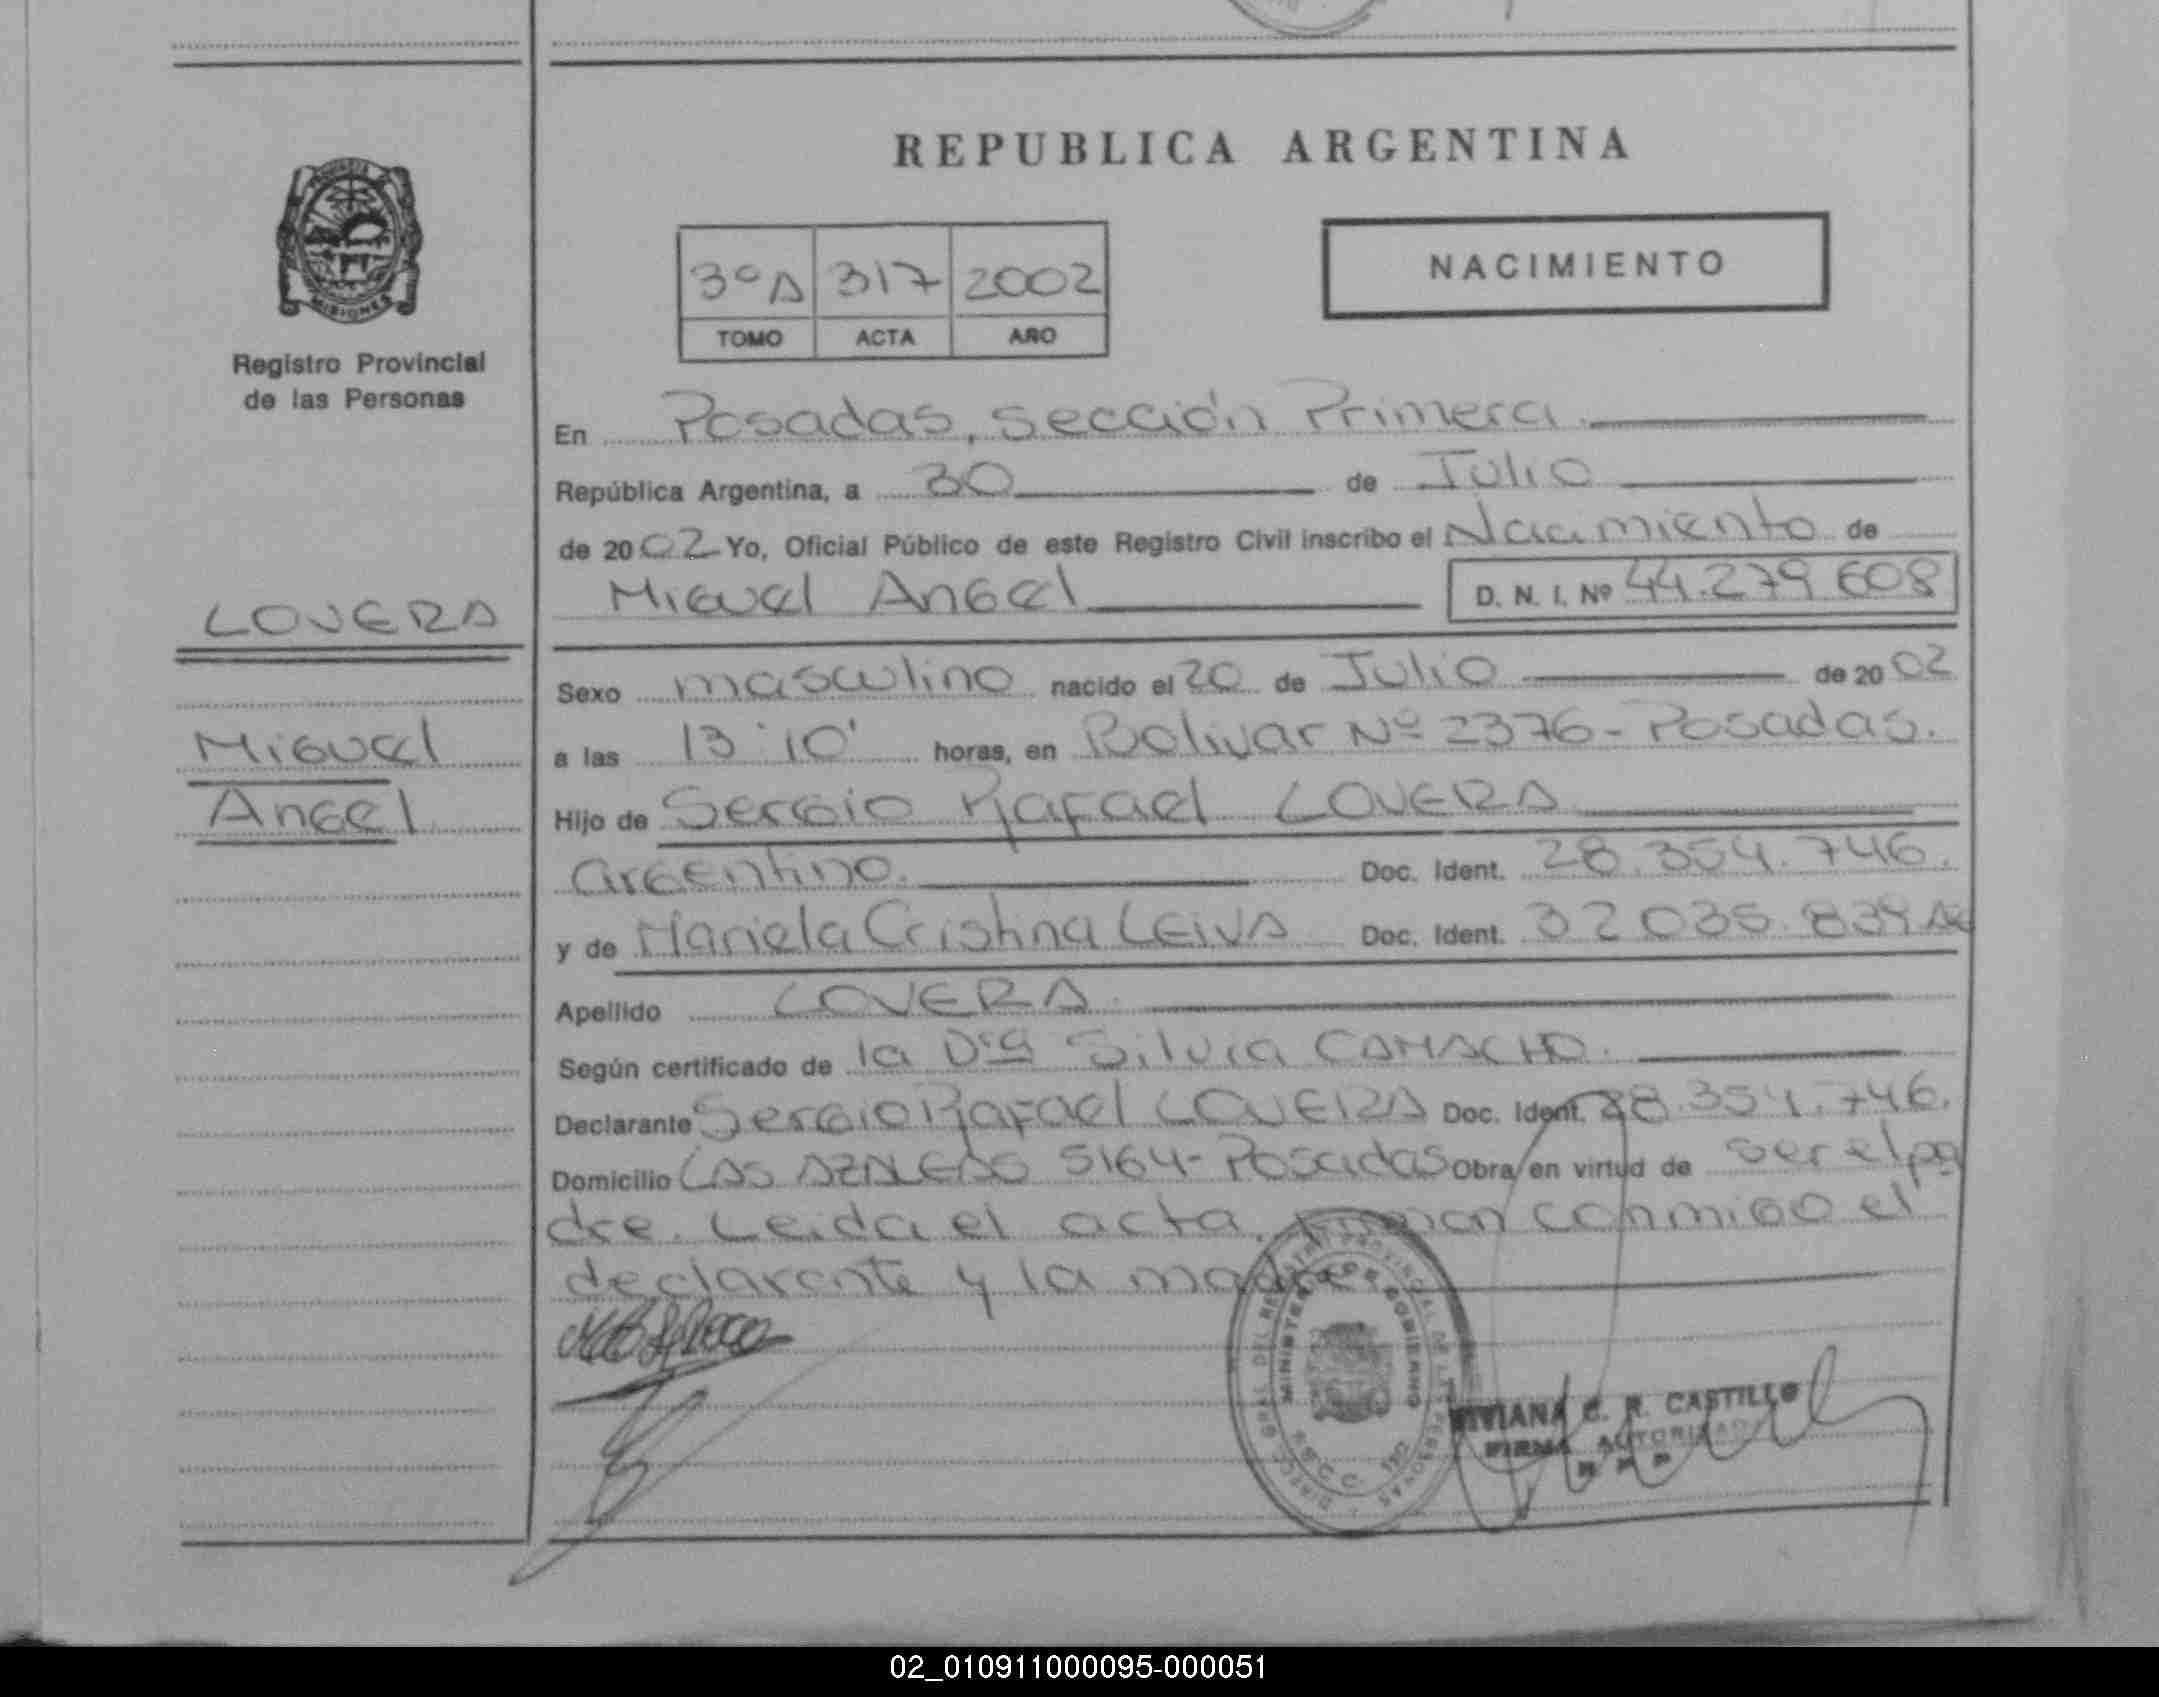 REPUBLICA ARGENTINA
MISIONES
Registro Provincial
de las Personas
3º A 317 2002
TOMO ACTA AÑO
NACIMIENTO
LOVERA
Miguel
Angel
En Posadas, sección Primera.
República Argentina, a 30 de Julio
de 2002 Yo, Oficial Público de este Registro Civil inscribo el Nacimiento de
Miguel Angel D. N. I. Nº 44.279.608
Sexo masculino nacido el 20 de Julio de 2002
a las 13:10' horas, en Bolivar Nº 2376 - Posadas.
Hijo de Sergio Rafael LOVERA
argentino. Doc. Ident. 28.354.746.
y de Mariela Cristina LEIVA Doc. Ident. 32035.839
Apellido LOVERA
Según certificado de la Dra Silvia CAMACHO.
Declarante Sergio Rafael LOVERA Doc. Ident. 28.354.746.
Domicilio LAS AZALEAS 5164 - Posadas Obra en virtud de ser el pa
dre. Leida el acta, firman conmigo el
declarante y la madre
MINISTERIO DE GOBIERNO
VIVIANA C. R. CASTILLO
FIRMA AUTORIZADA
02_010911000095-000051